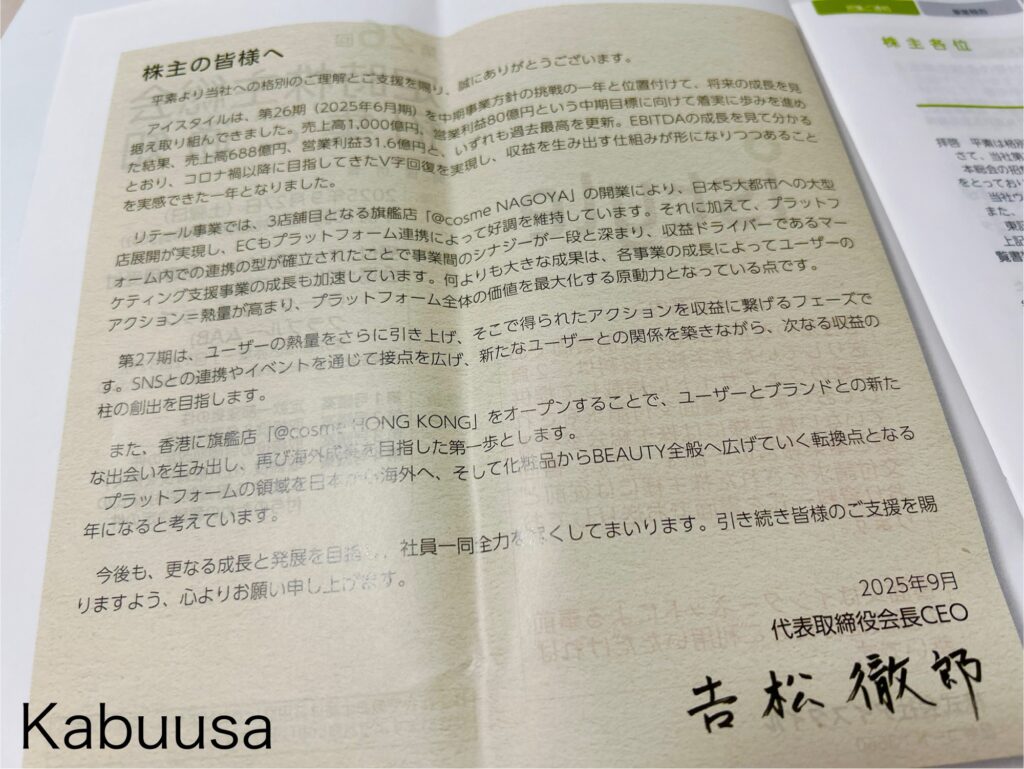 株主の皆様へ
平素より当社への格別のご理解とご支援を賜り、誠にありがとうございます。
アイスタイルは、第26期（2025年6月期）を中期事業方針の挑戦の一年と位置付けて、将来の成長を見
据え取り組んできました。売上高1,000億円、営業利益80億円という中期目標に向けて着実に歩みを進め
た結果、売上高688億円、営業利益31.6億円と、いずれも過去最高を更新。EBITDAの成長を見て分かる
とおり、コロナ禍以降に目指してきたV字回復を実現し、収益を生み出す仕組みが形になりつつあること
を実感できた一年となりました。
リテール事業では、3店舗目となる旗艦店「@cosme NAGOYA」の開業により、日本5大都市への大型
店展開が実現し、ECもプラットフォーム連携によって好調を維持しています。それに加えて、プラットフ
ォーム内での連携の型が確立されたことで事業間のシナジーが一段と深まり、収益ドライバーであるマー
ケティング支援事業の成長も加速しています。何よりも大きな成果は、各事業の成長によってユーザーの
アクション＝熱量が高まり、プラットフォーム全体の価値を最大化する原動力となっている点です。
第27期は、ユーザーの熱量をさらに引き上げ、そこで得られたアクションを収益に繋げるフェーズで
す。SNSとの連携やイベントを通じて接点を広げ、新たなユーザーとの関係を築きながら、次なる収益の
柱の創出を目指します。
また、香港に旗艦店「@cosme HONG KONG」をオープンすることで、ユーザーとブランドとの新た
な出会いを生み出し、再び海外成長を目指した第一歩とします。
プラットフォームの領域を日本から海外へ、そして化粧品からBEAUTY全般へ広げていく転換点となる
年になると考えています。
今後も、更なる成長と発展を目指し、社員一同全力を尽くしてまいります。引き続き皆様のご支援を賜
りますよう、心よりお願い申し上げます。
2025年9月
代表取締役会長CEO
吉松徹郎
株主各位
拝啓 平素は格別
さて、当社第
本総会の招
をとってお
当社ウ
また、
東証
上記
覧書
Kabuusa